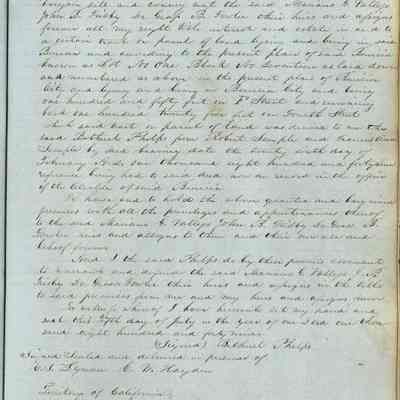 bargain sell and convey unto the said Mariano G Vallejo
John B. Frisby De Grasse B. Fowler their heirs and assigns
forever all my right title interest and estate in and to
a certain tract or parcel of land lying and being in said
Benicia and according to the present plan of said Benicia
known as Lot No One Block No Seventeen as laid down
and numbered as above in the present plan of Benicia
City and lying and being in Benicia City and being
one hundred and fifty feet on F Street and running
back one hundred twenty five feet on Fourth Street
Which said lot or parcel of Land was deeded to me the
said Bethuel Phelps from Robert Semple and Frances Ann
Semple by deed bearing date the twenty sixth day of
February A.D. One thousand eight hundred and forty nine
reference being had to said deed now on record in the office
of the Alcalde of said Benicia
To have and to hold the above granted and bargained
premises with all the privileges and appurtenances thereof
to the said Mariano G Vallejo John B. Frisby De Grasse B.
Fowler heirs and assigns to them and their use and
behoof forever
And I the said Phelps do by these presents covenant
to warrant and defend the said Mariano G Vallejo J. B.
Frisby De Grasse Fowler their heirs and assigns in the title
to said premises from me and my heirs and assigns
In witness whereof I have hereunto set my hand and
seal this day of July in the year of our Lord one thou
sand eight hundred and forty nine
(Signed) Bethuel Phelps
Signed Sealed and delivered in presence of
C. W. Hayden
Territory of California